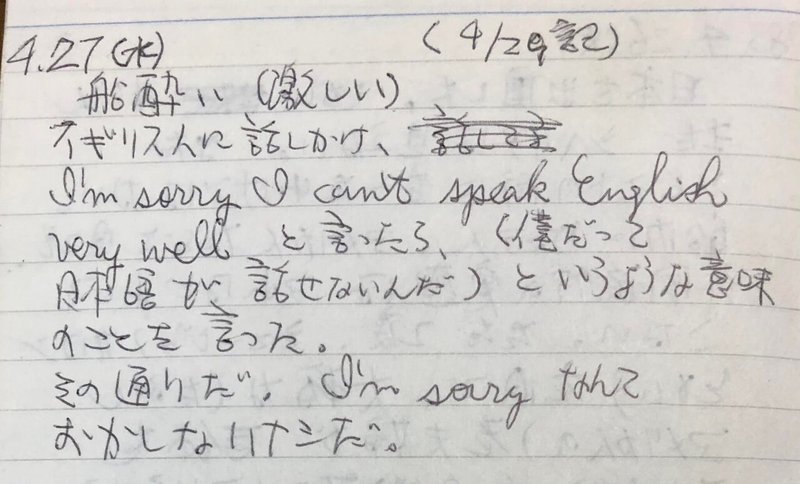 4.27(水) (4/29記)
船酔い(激しい)
イギリス人に話しかけ、
I'm sorry I can't speak English
very well と言ったら、(僕だって
日本語が話せないんだ)というような意味
のことを言った。
その通りだ。I'm sorry なんて
おかしなハナシだ。